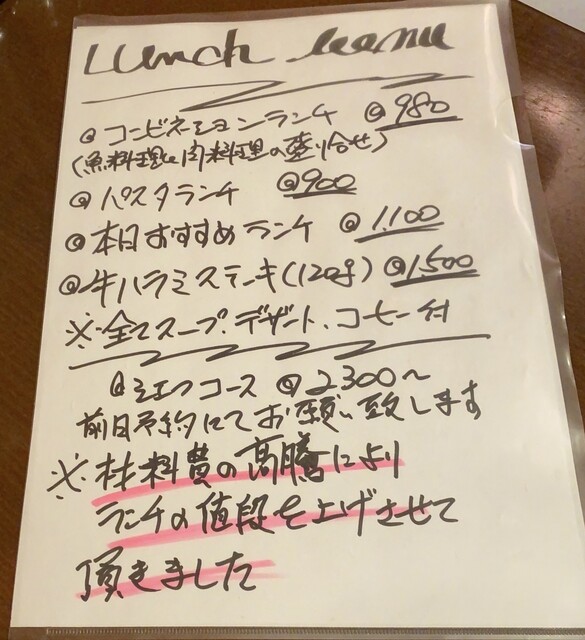 Lunch menu
@ コンビネーションランチ @980
(魚料理と肉料理の盛り合せ)
@ パスタランチ @900
@ 本日おすすめランチ @1,100
@ 牛ハラミステーキ(120g) @1,500
※全てスープ、デザート、コーヒー付
シェフコース @2300〜
前日予約にてお願い致します
※材料費の高騰により
ランチの値段を上げさせて
頂きました